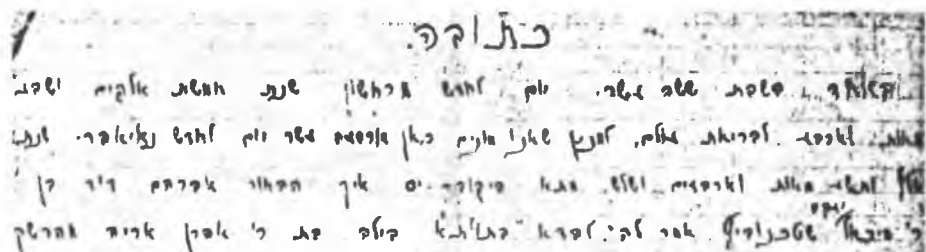 כתובה.
באחד בשבת ששה עשר יום לחדש מרחשון שנת חמשת אלפים ושבע
מאות וארבע לבריאת עולם, למנין שאנו מונים כאן ארבעה עשר יום לחדש שנת
אלף ותשע מאות וארבעים ושלש מתא איך הבחור אברהם דוד בן
ר' מיכאל אמר לה בתולתא בילה בת ר' אהרן אריה